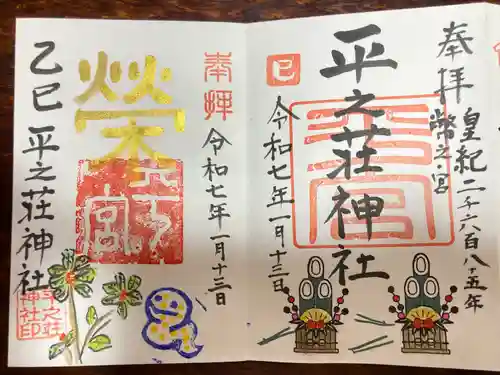 奉拝
皇紀二千六百八十五年
幣之宮
平之荘神社
巳
令和七年一月十三日
奉拝
令和七年一月十三日
榮
乙巳
平之荘神社
平之荘神社印